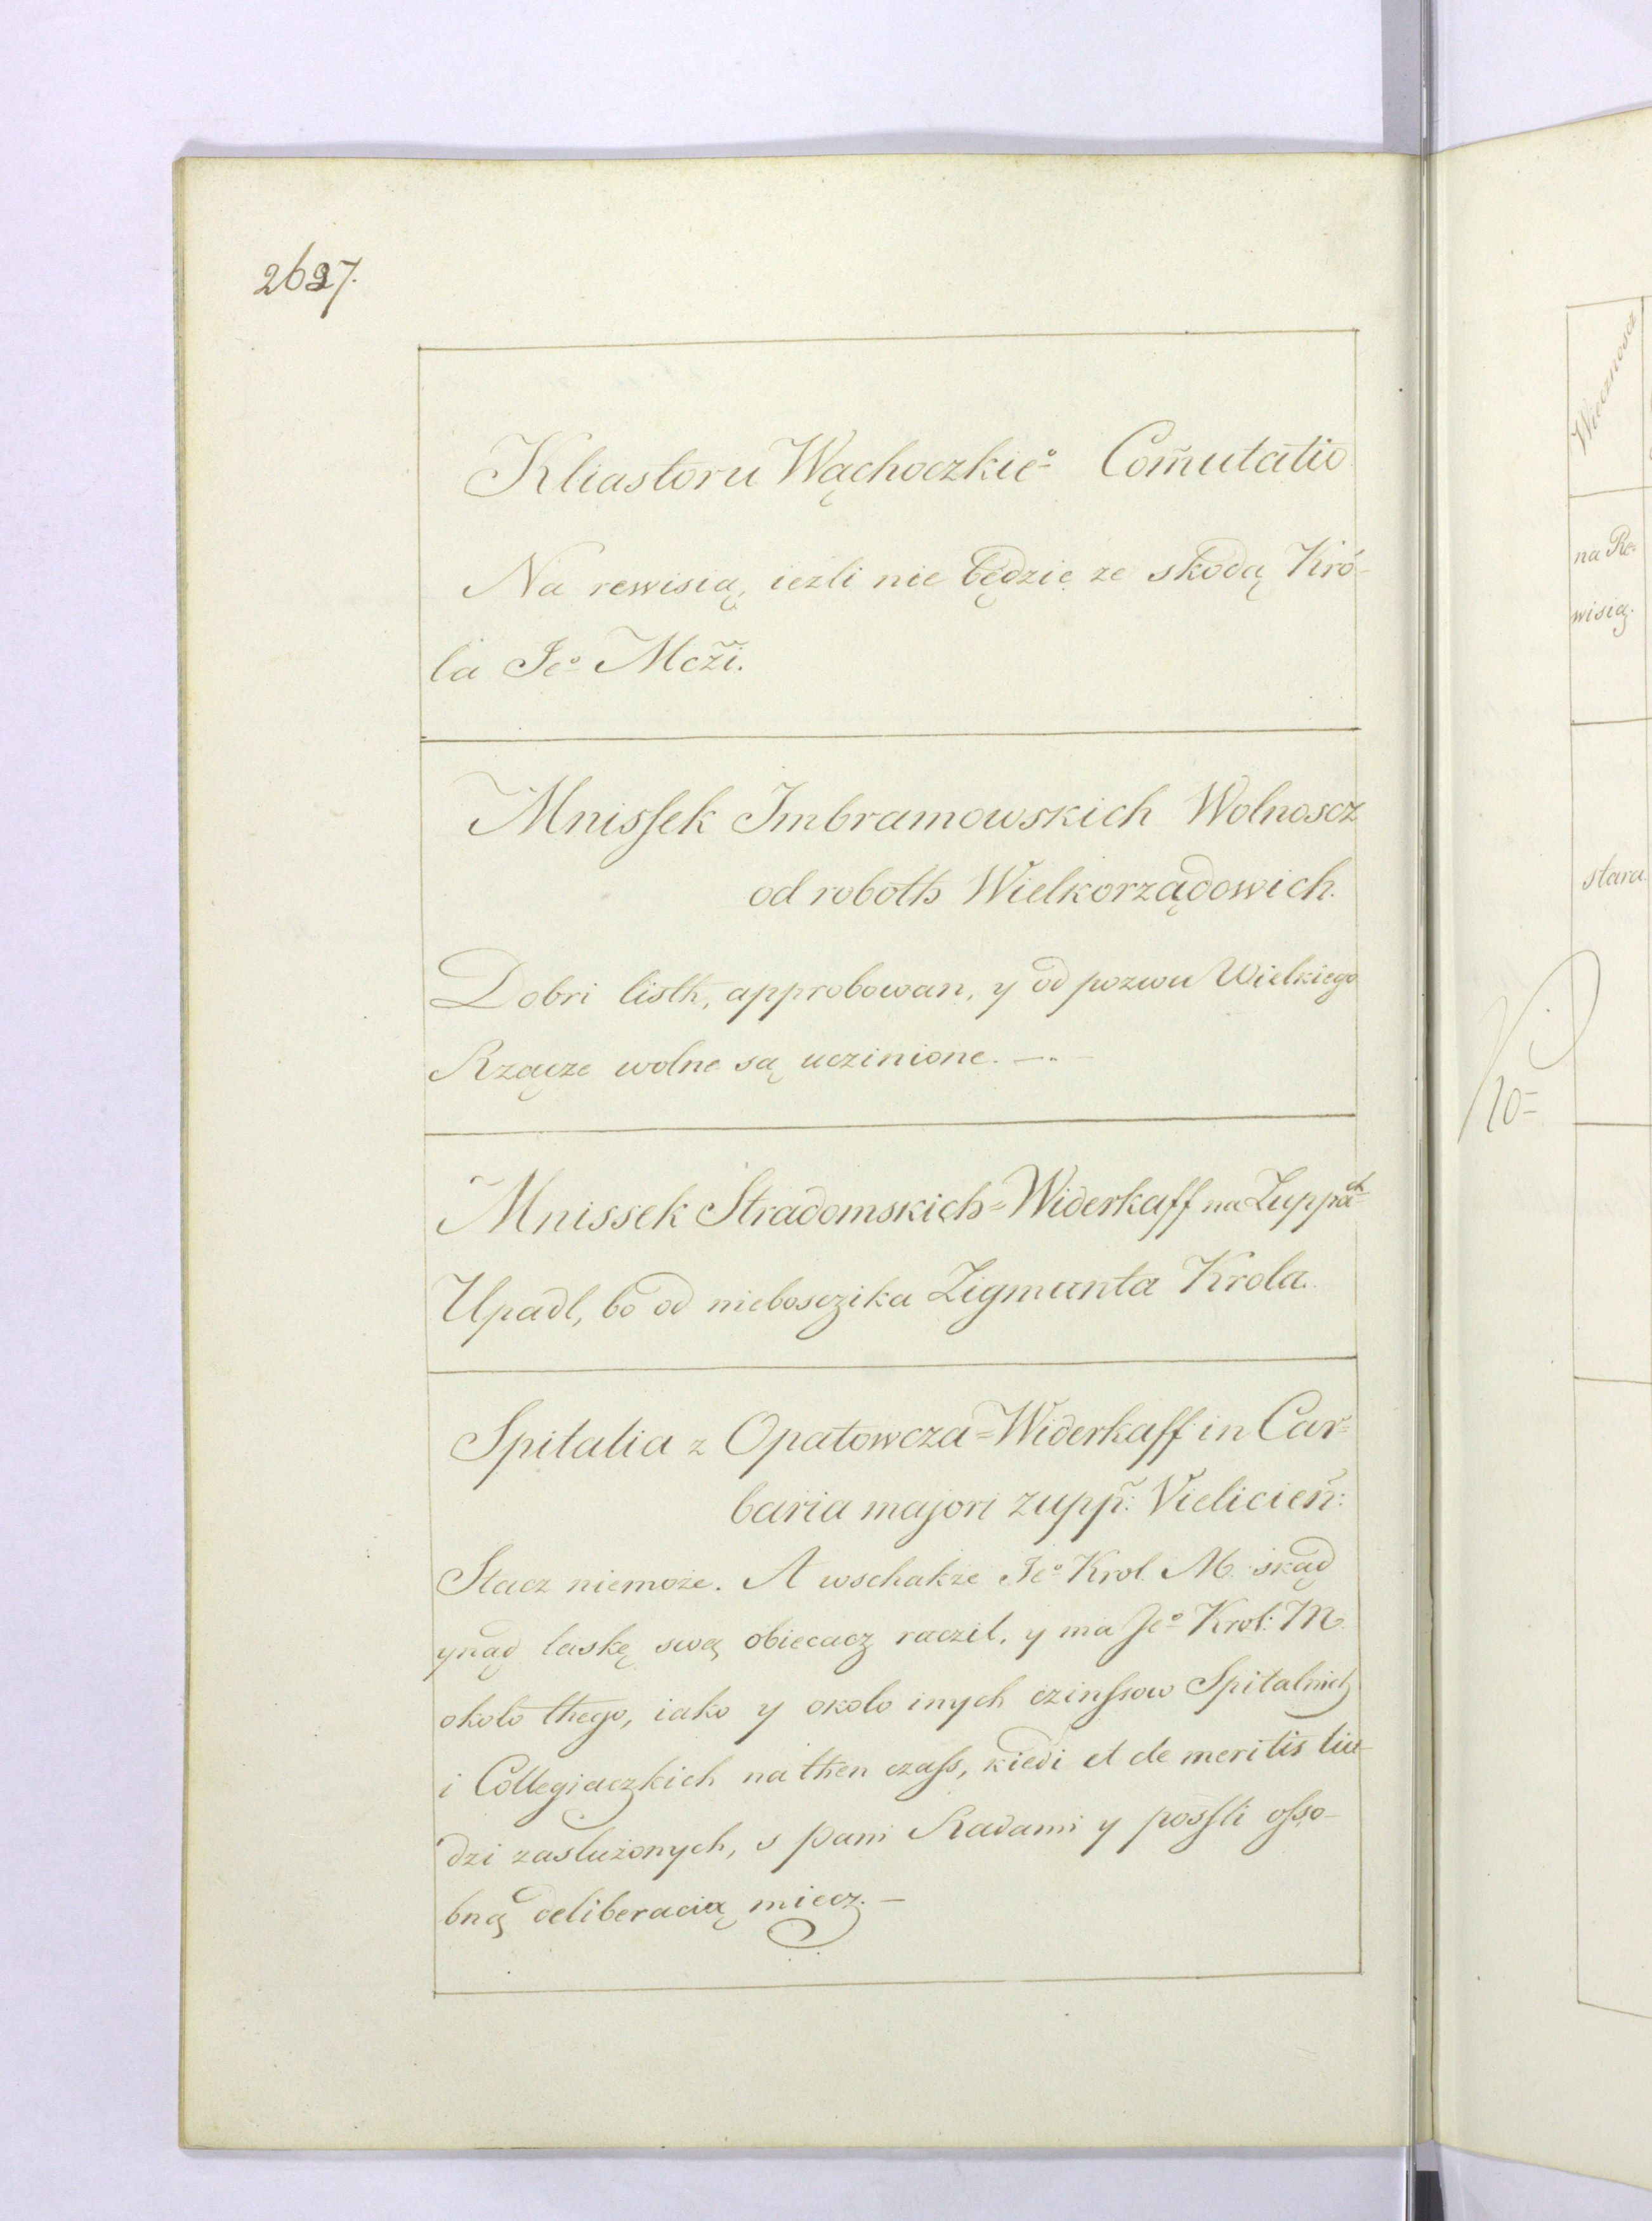 2697.
Kliastoru Wąchoczkieº Com̃utatio
Na rewisią, iezli nie będzie ze skodą Kró-
la Jeº Mcži.
Mnisſek Imbramowskich Wolnoscz
od roboth Wielkorządowich.
Dobri listh, approbowan, y od pozwu Wielkiego
Rządze wolne są uczinione. —
Mnissek Stradomskich=Widerkaff na Zuppach
Upadl, bo od nieboszika Zigmunta Krola.
Spitalia z Opatowcza=Widerkaff in Car=
baria majori zupp̃: Vielicieñ:
Stacz niemoże. A wschakże Jeº Krol. M. skąd
ynąd laskę swą obiecacz raczil, y ma Jeº Krol: M.
około thego, iako y około inych czinſsow Spitalnich
i Collegiaczkich na then czaſs, kiedi et de meritis liu-
dzi zasłużonych, s pani Radami y posſli oſso-
bną deliberacią miecz. —
Wiecznoscz
na Re-
wisią.
stara